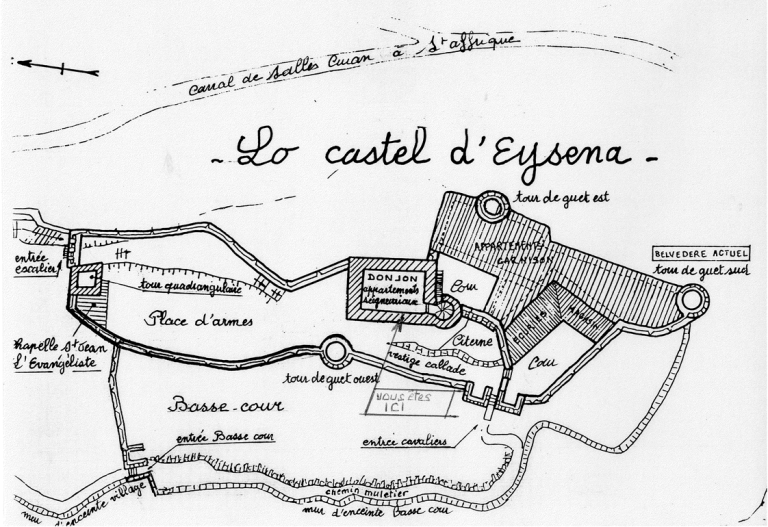 Canal de Salles Curan à St affrique
~ Lo castel d'Eysena -
tour de guet est
APPARTEMENTS
GARNISON
BELVEDERE ACTUEL
tour de guet sud
entrée
escalier
Ht
tour quadrangulaire
DONJON
appartements
seigneuriaux
Cou
Place d'armes
ECURIES
MAGASIN
Citerne
Cou
vestige callade
chapelle St Jean
l'Evangéliste
tour de guet ouest
VOUS ETES
ICI
Basse-cour
entrée Basse cour
entrée cavaliers
chemin muletier
mur d'enceinte village
mur d'enceinte Basse cour